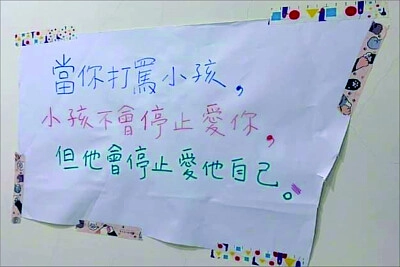 當你打罵小孩，
小孩不會停止愛你，
但他會停止愛他自己。